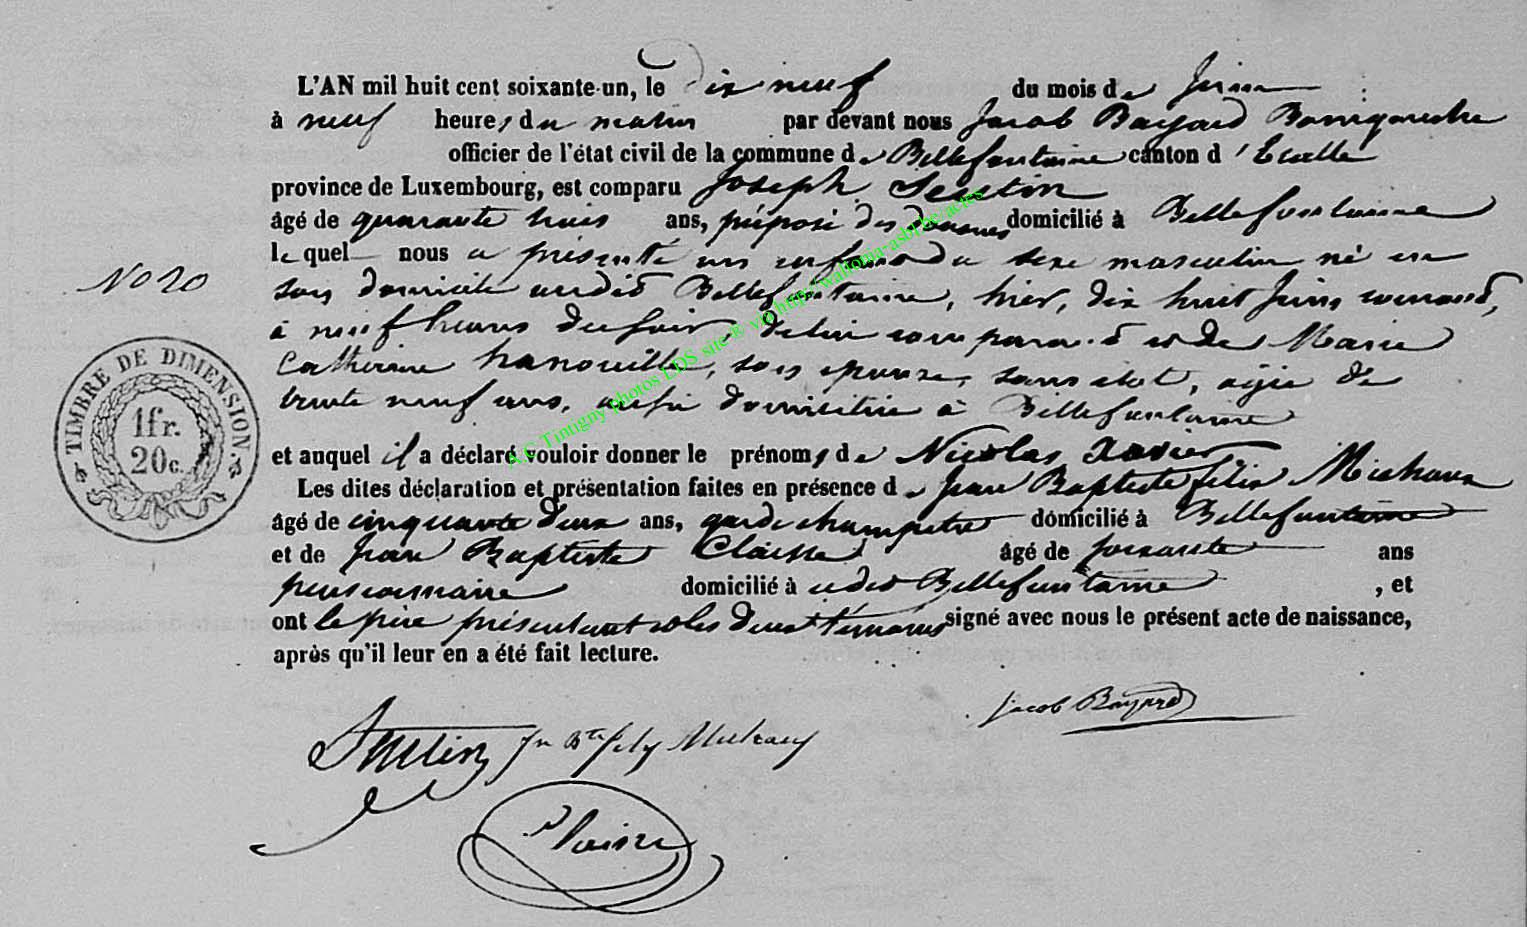 L'AN mil huit cent soixante-un, le dix neuf du mois de Juin
à neuf heures du matin par devant nous Jacob Bayard Bourgmestre
officier de l'état civil de la commune de Bellefontaine canton d'Etalle
province de Luxembourg, est comparu Joseph
âgé de quarante trois ans, préposé des douanes domicilié à Bellefontaine
le quel nous a présenté un enfant du sexe masculin né en
son domicile audit Bellefontaine, hier, dix huit Juin courant,
No 20
à neuf heures du soir, de lui comparant et de Marie
Catherine, son épouse, sans état, agée de
trente neuf ans, aussi domiciliée à Bellefontaine
TIMBRE DE DIMENSION.
1fr.
20c.
et auquel il a déclaré vouloir donner le prénoms de Nicolas Xavier
Les dites déclaration et présentation faites en présence de Jean Baptiste Félix Michaux
âgé de cinquante deux ans, garde champetre domicilié à Bellefontaine
et de Jean Baptiste Claisse âgé de soixante ans
pensionnaire domicilié à udit Bellefontaine, et
ont le père présentant et les deux témoins signé avec nous le présent acte de naissance,
après qu'il leur en a été fait lecture.
Jacob Bayard
Jn Bte Michaux
A.G Tintigny photos EDS site ® via http://wallonia-asbl.be/actes